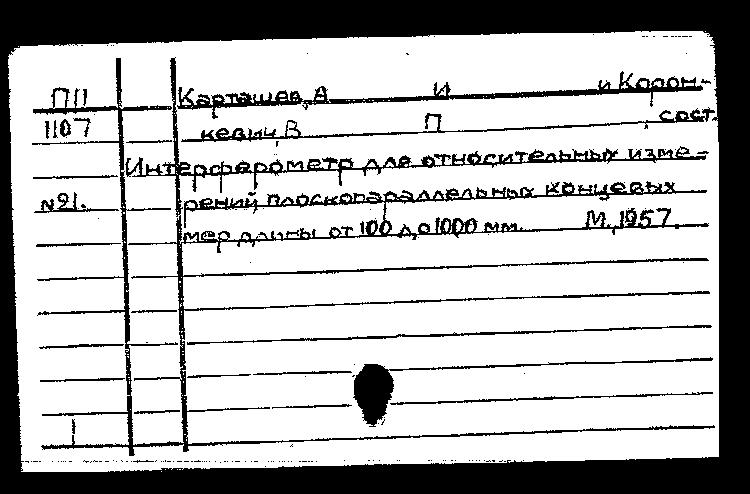 ПП Карташев, А И и Корон-
1107 кевич, В П , сост.
Интерферометр для относительных изме-
№21. рений плоскопараллельных концевых
мер длины от 100 до 1000 мм. М., 1957.